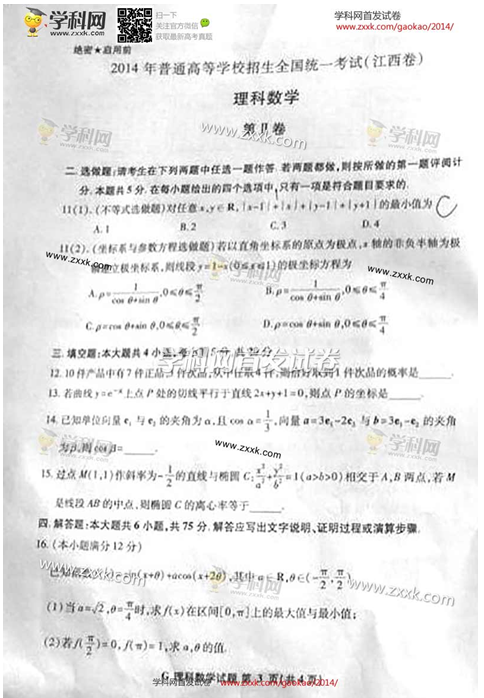 学科网
WWW.ZXXK.COM
扫一下
关注官方微信
获取最新高考真题
学科网首发试卷
www.zxxk.com/gaokao/2014/
绝密★启用前
2014 年普通高等学校招生全国统一考试(江西卷)
理科数学
第Ⅱ卷
二. 选做题:请考生在下列两题中任选一题作答. 若两题都做,则按所做的第一题评阅计
分. 本题共 5 分. 在每小题给出的四个选项中,只有一项是符合题目要求的.
11(1). (不等式选做题)对任意 x,y∈R, |x-1|+|x|+|y-1|+|y+1| 的最小值为 C
A. 1 B. 2 C. 3 D. 4
11(2). (坐标系与参数方程选做题)若以直角坐标系的原点为极点, x 轴的非负半轴为极
轴建立极坐标系,则线段 y=1-x(0≤x≤1)的极坐标方程为
A. ρ=1/(cos θ+sin θ),0≤θ≤π/2 B. ρ=1/(cos θ+sin θ),0≤θ≤π/4
C. ρ=cos θ+sin θ,0≤θ≤π/2 D. ρ=cos θ+sin θ,0≤θ≤π/4
三. 填空题:本大题共 4 小题, 每小题 5 分, 共 20 分
学科网首发试卷
12. 10 件产品中有 7 件正品, 3 件次品,从中任取 4 件,则恰好取到 1 件次品的概率是
13. 若曲线 y=e⁻ˣ 上点 P 处的切线平行于直线 2x+y+1=0,则点 P 的坐标是
14. 已知单位向量 e₁ 与 e₂ 的夹角为 α,且 cos α=1/3,向量 a=3e₁-2e₂ 与 b=3e₁-e₂ 的夹角
为 β,则 cos β=
15. 过点 M(1,1)作斜率为 -1/2 的直线与椭圆 C: x²/a²+y²/b²=1(a>b>0) 相交于 A,B 两点,若 M
是线段 AB 的中点,则椭圆 C 的离心率等于
四. 解答题:本大题共 6 小题,共 75 分. 解答应写出文字说明、证明过程或演算步骤.
16. (本小题满分 12 分)
已知函数 f(x)=sin(x+θ)+acos(x+2θ),其中 a∈R,θ∈(-π/2,π/2)
(1)当 a=√2,θ=π/4 时,求 f(x)在区间[0,π]上的最大值与最小值;
(2)若 f(π/2)=0, f(π)=1,求 a,θ 的值.
G 理科数学试题 第 3 页(共 4 页)
学科网首发试卷 www.zxxk.com/gaokao/2014/